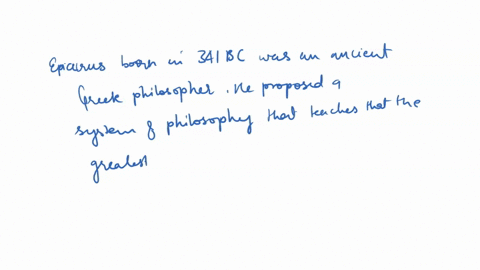 Epicurus born in 341 BC was an ancient
Greek philosopher. He proposed a
system of philosophy that teaches that the
greatest